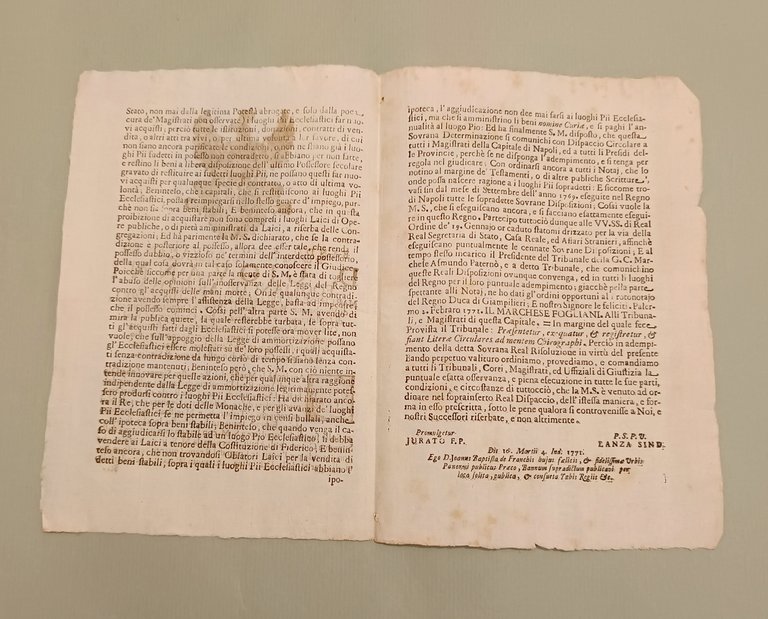 Stato, non mai dalla legitima Potestà abrogate, e solo dalla poca
cura de' Magistrati non osservate) i luoghi Pii Ecclesiastici far nuo-
vi acquisti, perciò tutte le istituzioni, donazioni, contratti di ven-
dita, o altri atti tra vivi, o per ultima volontà a lor favore, di cui
non siano ancora purificate le condizioni, o ne siano già i luo-
ghi Pii sudetti in possesso non contradetto, si abbiano per non fatte,
e restino li beni a libera disposizione dell'ultimo Possessore secolare
gravato di restituire ai sudetti luoghi Pii, ne possano questi far nuo-
vi acquisti per qualunque specie di contratto, o atto di ultima vo-
lontà; Beninteso, che i capitali, che si restituiscono ai luoghi Pii
Ecclesiastici, possano reimpiegarsi nello stesso genere d'impiego, pur-
chè non siano beni stabili; E benìnteso ancora, che in questa
proibizione di acquisti non sono compresi i luoghi Laici di Ope-
re publiche, o di pietà amministrati da Laici, a riserba delle Con-
gregazioni; Ed ha parimente la M.S. dichiarato, che se la contra-
dizione è posteriore al possesso, allora dee esser tale, che renda il
possesso dubbio, o vizzioso ne' termini dell'interdetto possessorio,
della qual cosa dovrà in tal caso solamente conoscere il Giudice,
Poichè siccome per una parte la mente di S. M. è stata di togliere
l'abuso delle opinioni sull'inosservanza delle Leggi del Regno
contro gl'acquisti delle mani morte; Onde qualunque contradi-
zione avendo sempre l'assistenza della Legge, basta ad impedire,
che il possesso cominci. Così pell'altra parte S. M. avendo di
mira la publica quiete, la quale resterebbe turbata, se sopra tut-
ti gl'acquisti fatti dagli Ecclesiastici si potesse ora mover lite, non
vuole, che sull'appoggio della Legge di ammortizazione possano
gl'Ecclesiastici essere molestati su de' loro possessi, i quali acquista-
ti senza contradizione da lungo corso di tempo si siano senza con-
tradizione mantenuti, Benintelo però, che S. M. con ciò niente in-
tende innovare per quelle azioni, che per qualunque altra raggione
independente dalla Legge di ammortizazione legitimamente potes-
sero prodursi contro i luoghi Pii Ecclesiastici; Ha dichiarato anco-
ra il Re, che per le doti delle Monache, e per gli avanzi de' luoghi
Pii Ecclesiastici se ne permetta l'impiego in censi bullali, anche
coll'ipoteca sopra beni stabili; Benìnteso, che quando venga il ca-
so di aggiudicarsi lo stabile ad un luogo Pio Ecclesiastico, si debba
vendere ai Laici a tenore della Costituzione di Fiderico; E benin-
teso ancora, che non trovandosi Oblatori Laici per la vendita di
detti beni stabili, sopra i quali i luoghi Pii Ecclesiastici abbiano l'
ipo-
ipoteca, l'aggiudicazione non dee mai farsi ai luoghi Pii Ecclesia-
stici, ma che si amministrino li beni nomine Curiæ, e si paghi l'an-
nualità al luogo Pio: Ed ha finalmente S. M. disposto, che questa
Sovrana Determinazione si comunichi con Dispaccio Circolare a
tutti i Magistrati della Capitale di Napoli, ed a tutti li Presidi del-
le Provincie, perchè se ne disponga l'adempimento, e si tenga per
regola nel giudicare: Con ordinarsi ancora a tutti i Notaj, che lo
notino al margine de' Testamenti, o di altre publiche Scritture,
onde possa nascere ragione a i luoghi Pii sopradetti: E siccome tro-
vansi sin dal mese di Settembre dell'anno 1769. eseguite nel Regno
di Napoli tutte le sopradette Sovrane Disposizioni; Così vuole la
M. S., che si eseguiscano ancora, e si facciano esattamente esegui-
re in questo Regno. Partecipo tuttociò dunque alle VV.SS. di Real
Ordine de' 19. Gennaro or caduto statomi dirizato per la via della
Real Segretaria di Stato, Casa Reale, ed Affari Stranieri, affinchè
eseguiscano puntualmente cennate Sovrane Disposizioni; E al
tempo stesso incarico il Presidente del Tribunale della G.C. Mar-
chese Asmundo Paternò, e a detto Tribunale, che comunichino
queste Reali Disposizioni ovunque convenga, ed in tutti i luoghi
del Regno per il loro puntuale adempimento; giacchè pella parte
spettante alli Notaj, ne ho dati gl'ordini opportuni al Protonotajo
del Regno Duca di Giampilieri; E nostro Signore le feliciti. Paler-
mo 2. Febraro 1771. IL MARCHESE FOGLIANI. Alli Tribuna-
li, e Magistrati di questa Capitale. = In margine del quale fece
Provista il Tribunale: Præsentetur, exequatur, & registretur, &
fiant Literæ Circulares ad mentem Chirographi. Perciò in adempi-
mento della detta Sovrana Real Risoluzione in virtù del presente
Bando perpetuo valituro ordiniamo, provediamo, e comandiamo
a tutti li Tribunali, Corti, Magistrati, ed Uffiziali di Giustizia la
puntuale esatta osservanza, e piena esecuzione in tutte le sue parti,
condizioni, e circostanze di tuttocciò, che la M.S. è venuto ad or-
dinare nel soprainserto Real Dispaccio, dell'istessa maniera, e for-
ma in esso prescritta, sotto le pene qualora si controvenisse a Noi, e
nostri Successori riserbate, e non altrimente.
Promulgetur P.S.P.V.
JURATO F.P. LANZA SIND.
Die 16. Martii 4. Ind. 1771.
Ego D. Joannes Baptista de Franchis hujus felicis, & fidelissimæ Urbis
Panormi publicus Præco, Bannum supradictum publicavi per
loca solita, publica, & consueta Tubis Regiis &c.